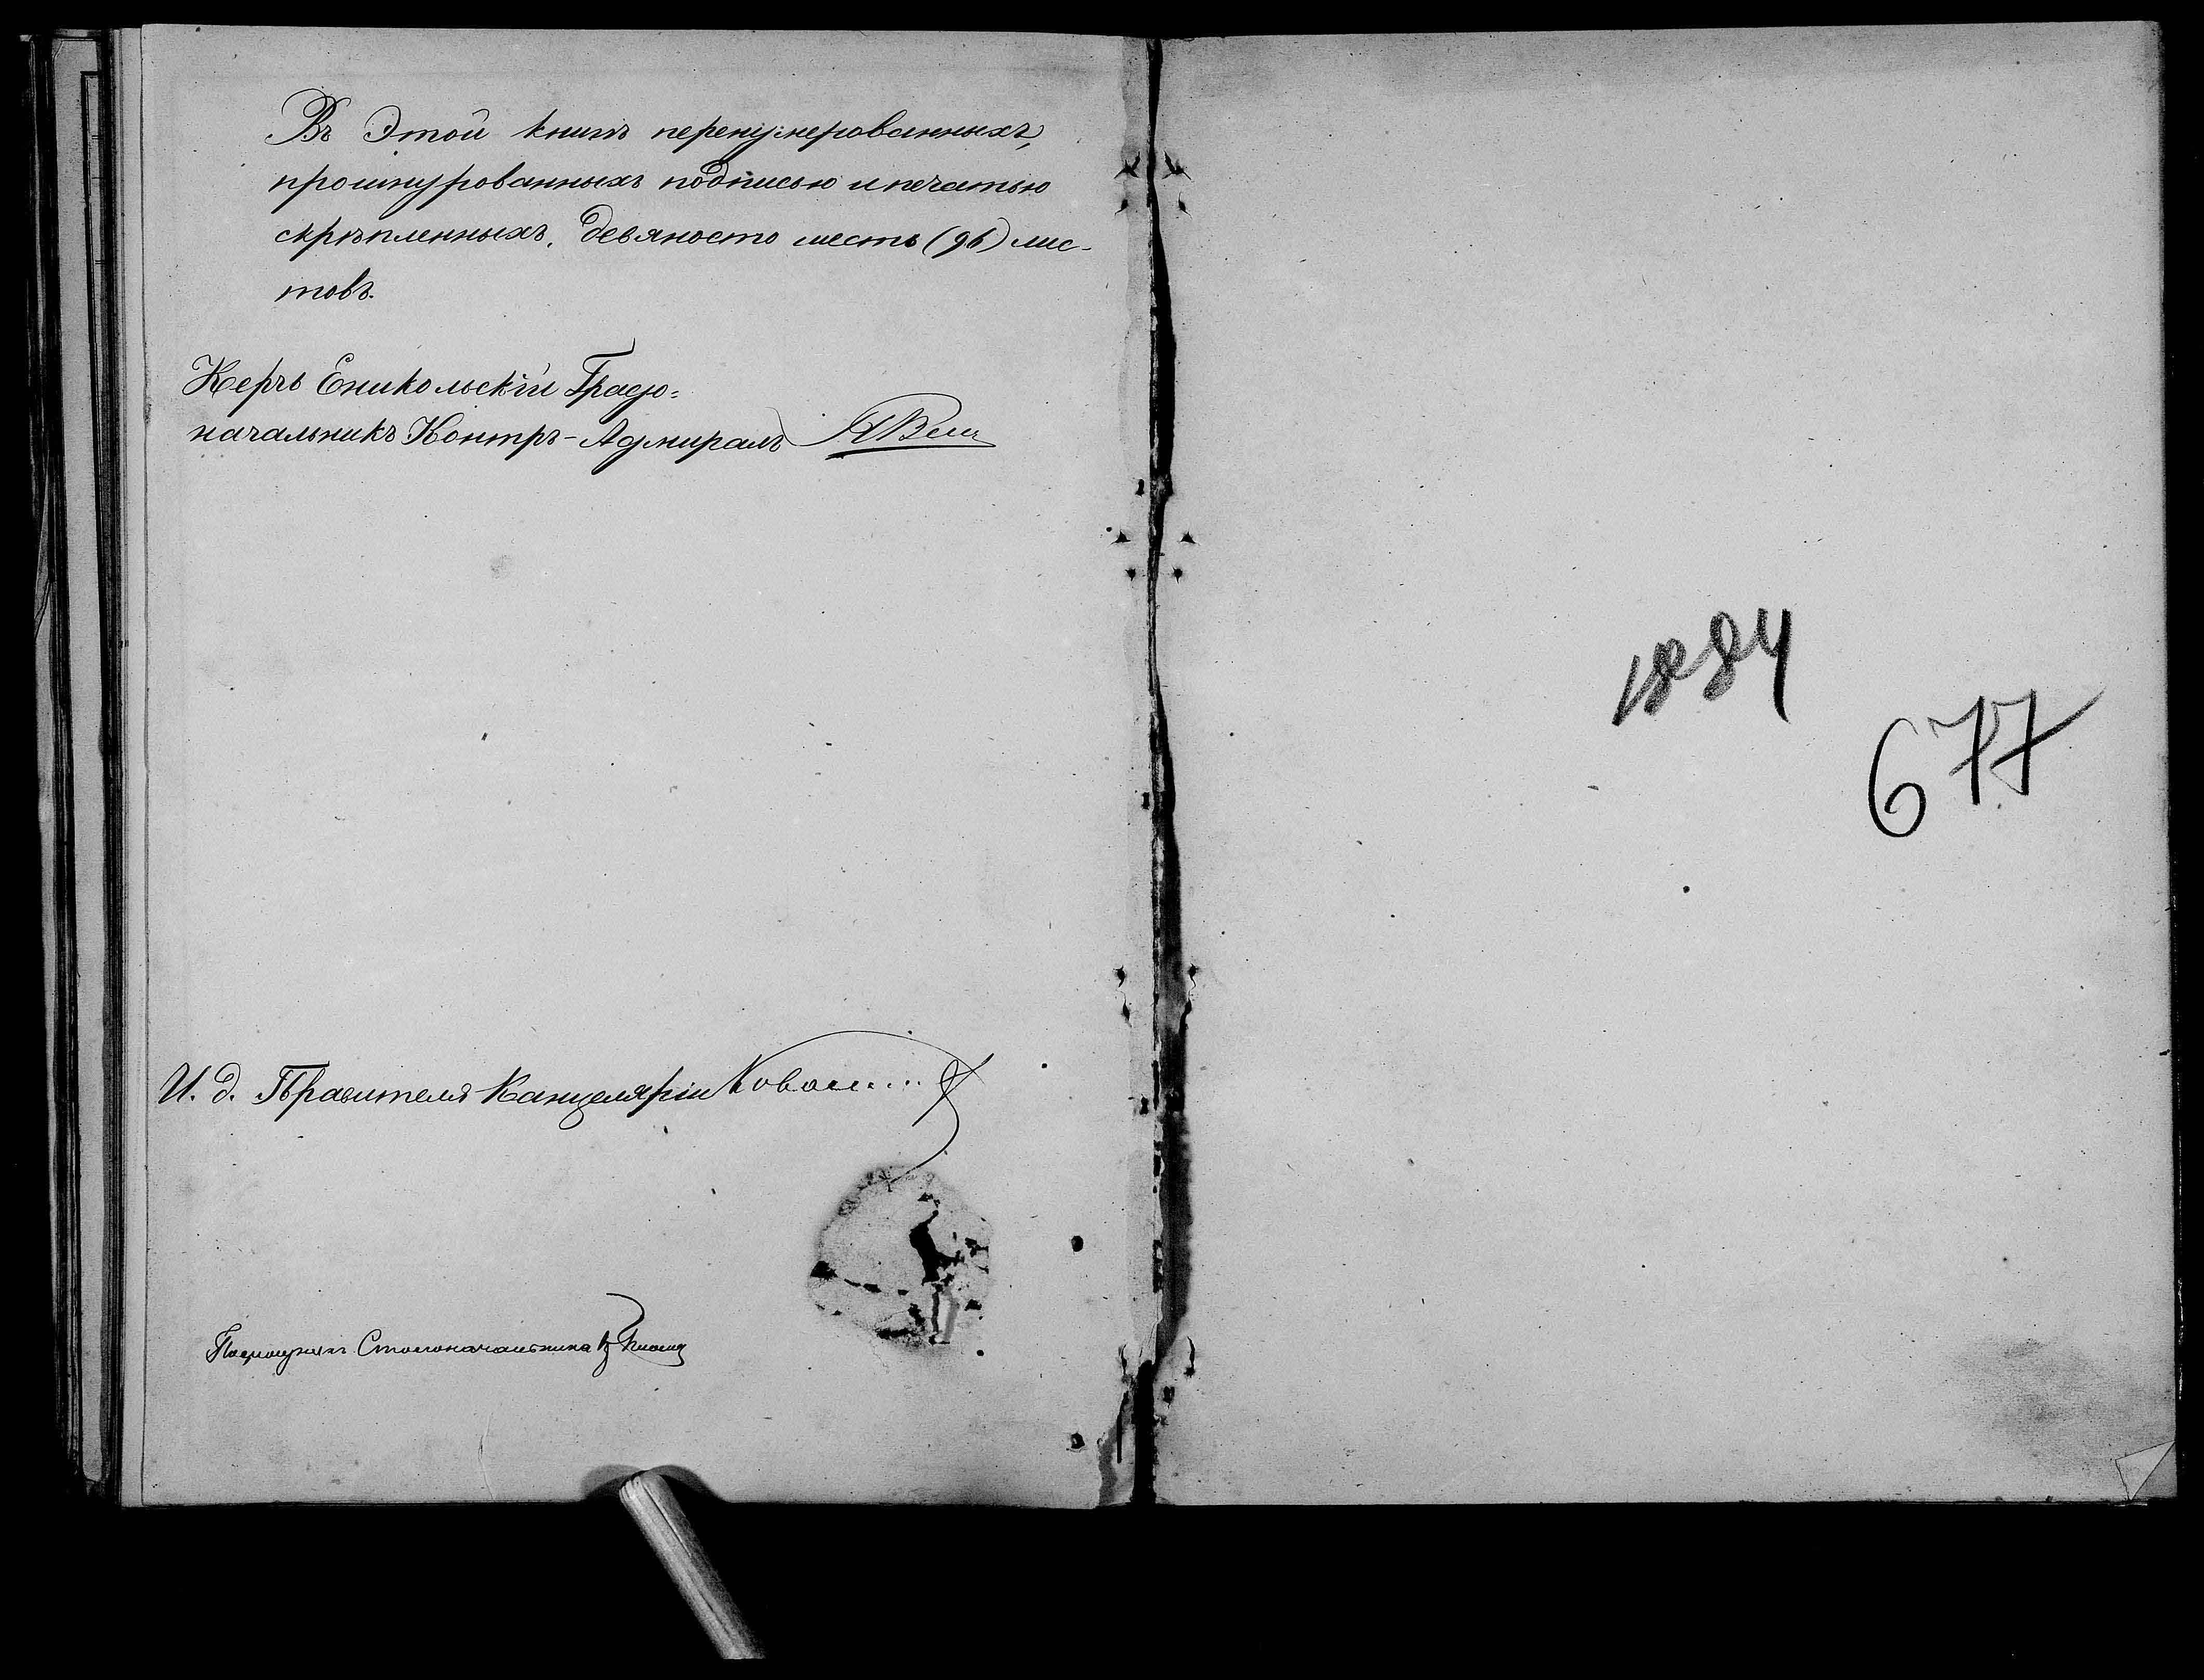 Въ Этой книгѣ перенумерованныхъ,
прошнурованныхъ подписью и печатью
скрѣпленныхъ, девяносто шесть (96) лис-
товъ.
Керчь Еникольскій Градо=
начальникъ Контръ-Адмиралъ
И. д. Правителя Канцеляріи
Помощникъ Столоначальника
1884
677